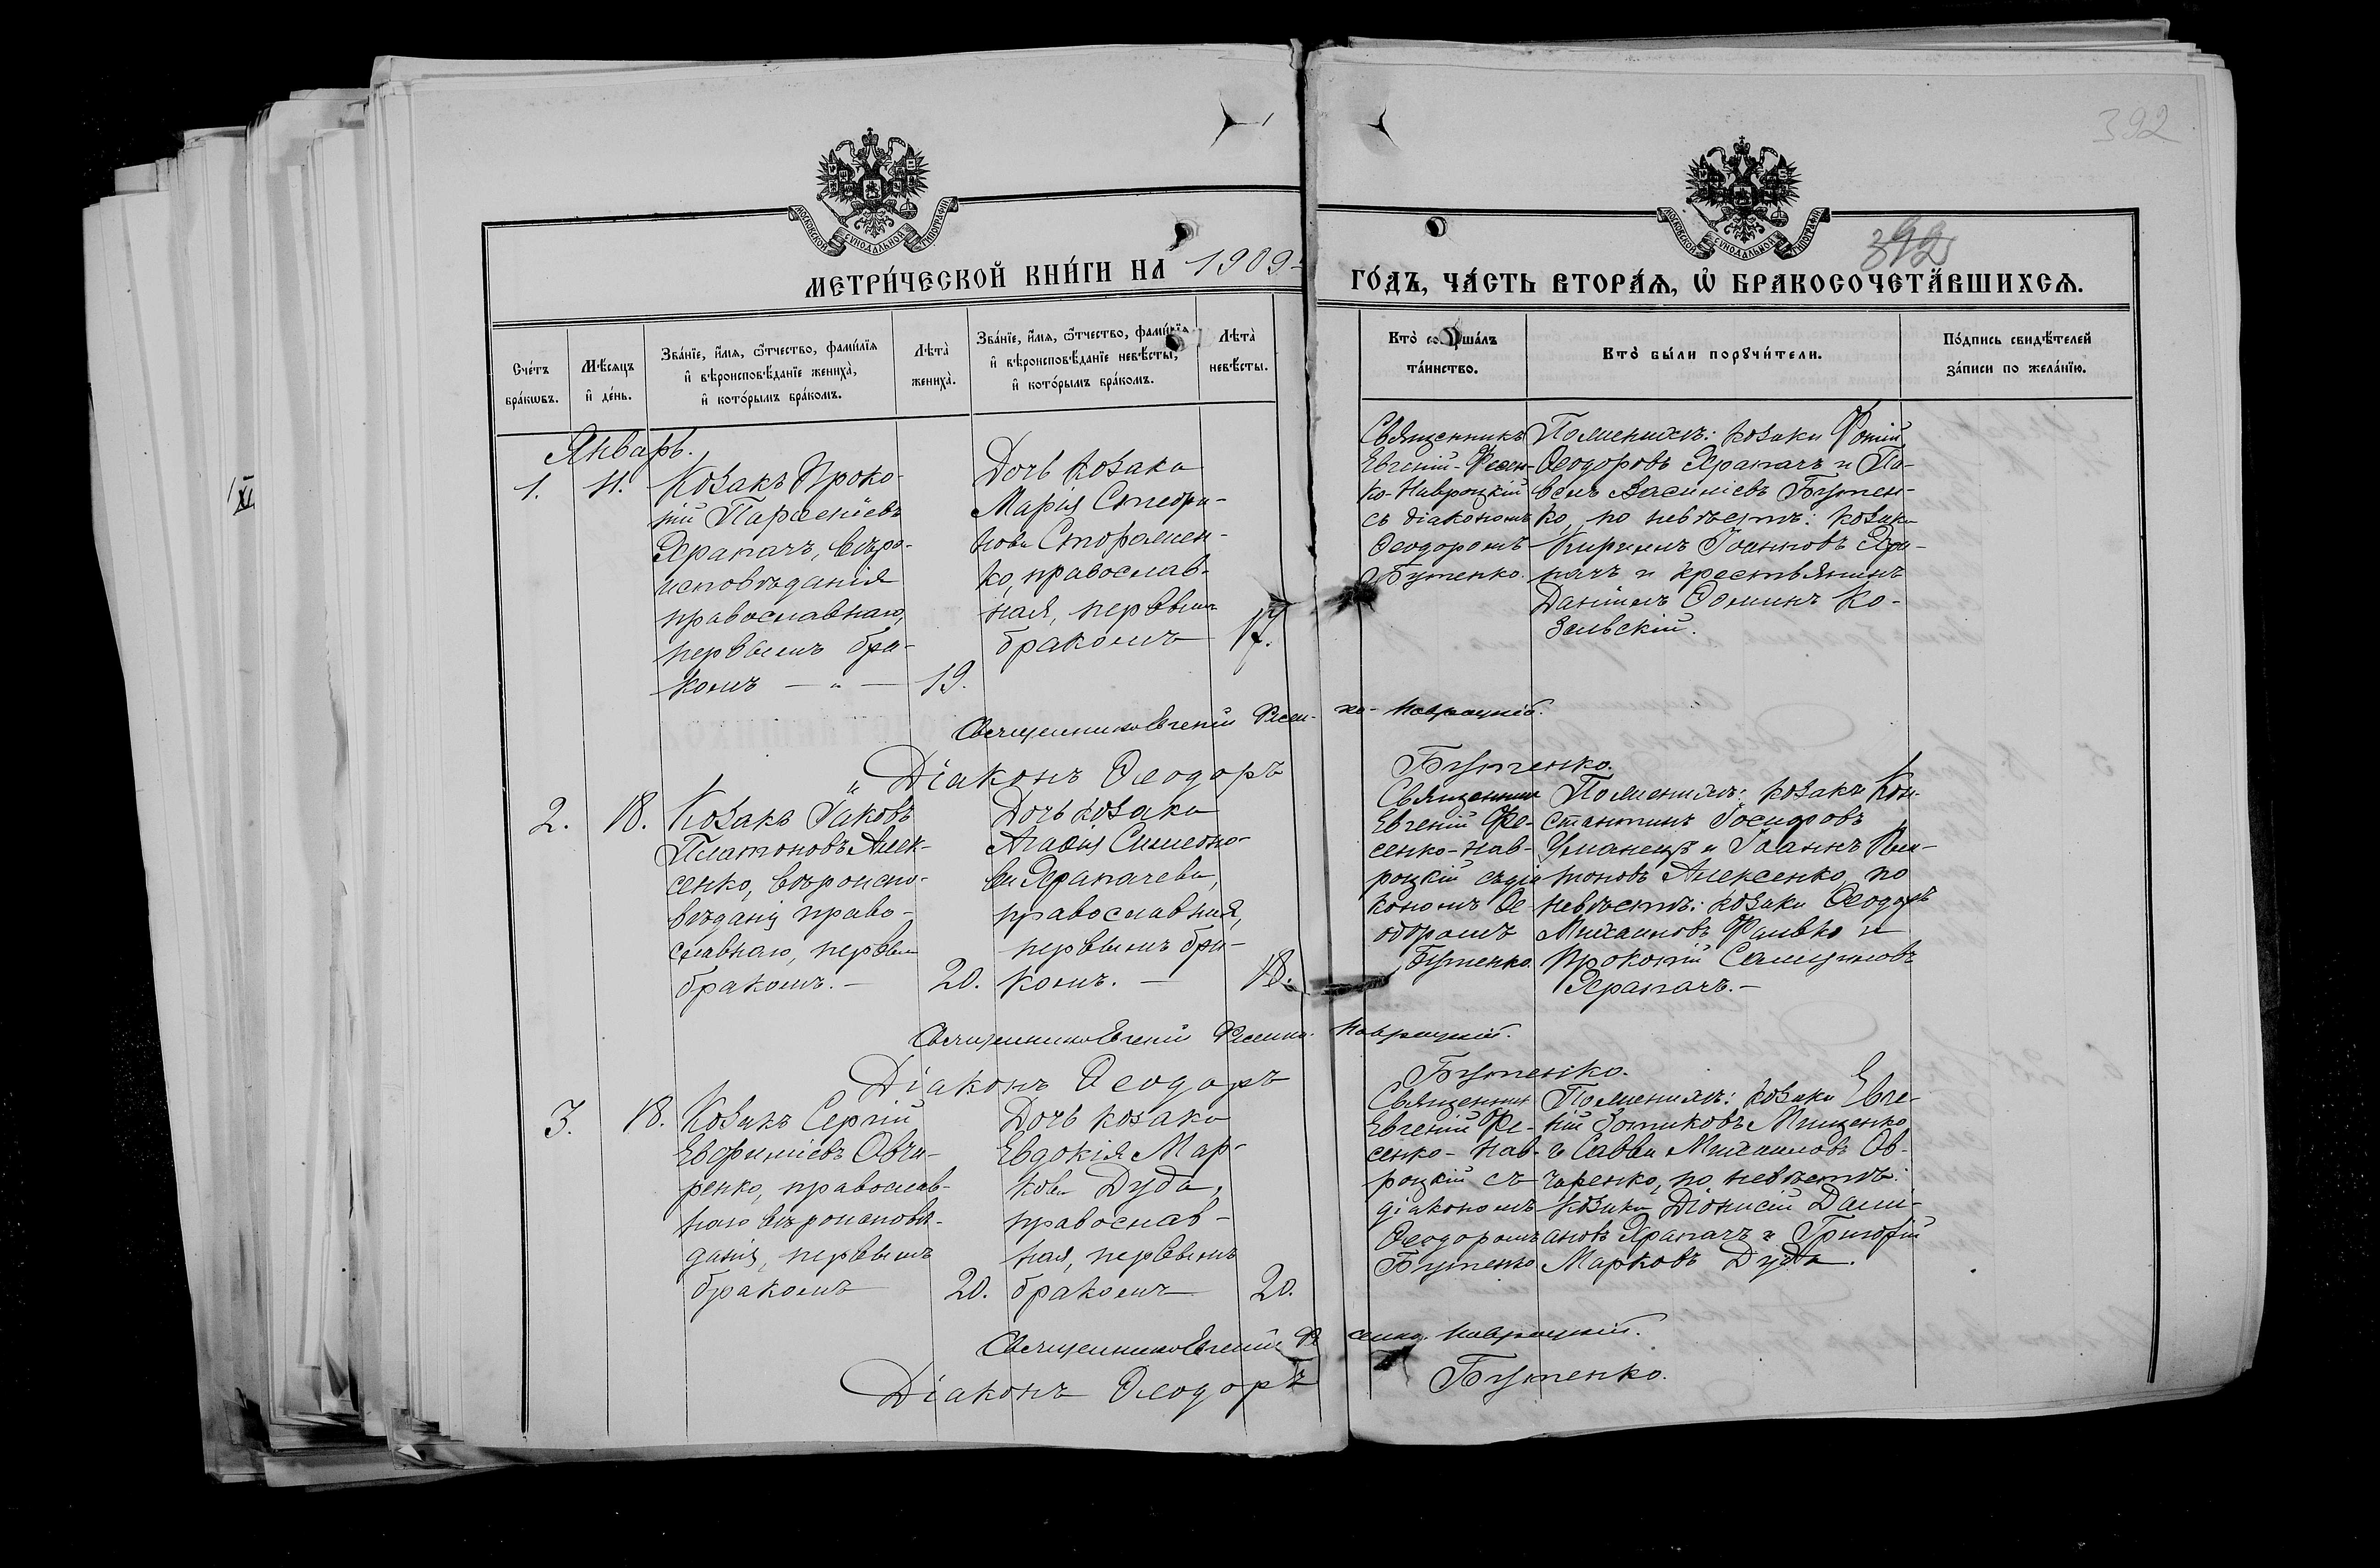 392
МОСКОВСКОЙ СѴНОДАЛЬНОЙ ТИПОГРАФІИ
МОСКОВСКОЙ СѴНОДАЛЬНОЙ ТИПОГРАФІИ
392
МЕТРИ́ЧЕСКОЙ КНИ́ГИ НА 1909
ГО́ДЪ, ЧА́СТЬ ВТОРА́Ѧ, Ѡ҆ БРАКОСОЧЕТА́ВШИХСѦ.
Сче́тъ
бра́кѡвъ.
Мѣ́сяцъ
и҆ де́нь.
Зва́нїе, и҆́мѧ, ѻ҆́тчество, фами́лїѧ
и҆ вѣроисповѣ́данїе жениха̀,
и҆ кото́рымъ бра́комъ.
Лѣта̀
жениха̀.
Зва́нїе, и҆́мѧ, ѻ҆́тчество, фами́лїѧ
и҆ вѣроисповѣ́данїе невѣ́сты,
и҆ кото́рымъ бра́комъ.
Лѣта̀
невѣ́сты.
Кто̀ со шáлъ
та́инство.
Кто̀ бы́ли порꙋчи́тели.
По́дпись свидѣ́телей
за́писи по жела́нїю.
Январь.
1.
11.
Козакъ Проко-
пій Парѳеніевъ
Храпачъ, вѣро-
исповѣданія
православнаго,
первымъ бра-
комъ — " —
19.
Дочь козака
Марія Стефа-
нова
православ-
ная, первымъ
бракомъ
17.
Священникъ
Евгеній Фесен-
ко-Навроцкій
съ діакономъ
Ѳеодоромъ
Бутенко.
По женихѣ: козаки Фотій
Ѳеодоровъ Храпачъ и Па-
велъ Василіевъ Бутен-
ко, по невѣстѣ: козакъ
Кириллъ Іоанновъ Хра-
пачъ и крестьянинъ
Даніилъ Ѳоминъ Ко-
зельскій.
Священникъ Евгеній Фесен- ко- Навроцкій.
" Діаконъ Ѳеодоръ Бутенко.
2.
18.
Козакъ Іаковъ
Платоновъ Алек-
сенко, вѣроиспо-
вѣданія право-
славнаго, первым
бракомъ. —
20.
Дочь козака
Агафія Симеоно-
ва Храпачева,
православная,
первымъ бра-
комъ. —
18.
Священник
Евгеній Фе-
сенко-Нав-
роцкій съ діа
кономъ Ѳе-
одоромъ
Бутенко.
По женихѣ: козаки Кон-
стантинъ Іосифовъ
Уманецъ и Іоаннъ Пла-
тоновъ Алексенко, по
невѣстѣ: козаки Ѳеодоръ
Михаиловъ и
Прокопій
Храпачъ. —
Священникъ Евгеній Фесенко- Навроцкій.
Діаконъ Ѳеодоръ Бутенко.
3.
18.
Козакъ Сергій
Евфиміевъ Овча-
ренко, православ-
наго вѣроисповѣ-
данія, первымъ
бракомъ
20.
Дочь козака
Евдокія Мар-
кова Дуда,
православ-
ная, первымъ
бракомъ
20.
Священник
Евгеній Фе-
сенко-Нав-
роцкій съ
діакономъ
Ѳеодоромъ
Бутенко
По женихѣ: козаки Евге-
ній Зотиковъ Мищенко
и Савва Михаиловъ Ов-
чаренко, по невѣстѣ:
козаки Діонисій Дами-
ановъ Храпачъ и Григорій
Марковъ Дуда.
Священникъ Евгеній Фе сенко- Навроцкій.
Діаконъ Ѳеодоръ Бутенко.